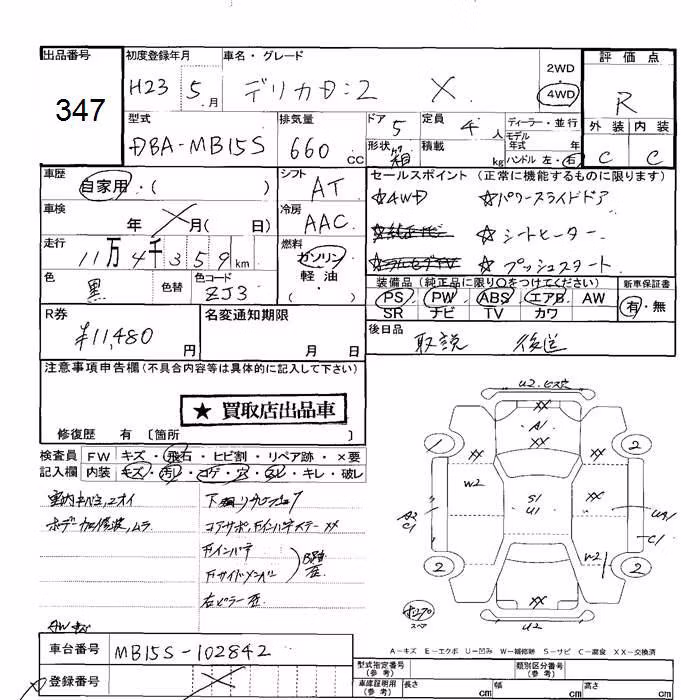 出品番号
347
初度登録年月
H23 5 月
車名・グレード
デリカD:2 X
2WD
4WD
評価点
R
外装 内装
C C
型式
DBA-MB15S
排気量
660 CC
ドア 5
形状 箱
定員 4 人
積載 kg
ディーラー・並行
モデル
年式 年
ハンドル 左・右
車歴
自家用・( )
シフト
AT
セールスポイント (正常に機能するものに限ります)
☆4WD ☆パワースライドドア
☆シートヒーター
☆プッシュスタート
車検
年 月( 日)
冷房
AAC
走行
11万4千359km
燃料
ガソリン
軽油
・( )
色
黒
色替
色コード
ZJ3
装備品 (純正品に限り○をつけてください)
PS PW ABS エアB AW
SR ナビ TV カワ
新車保証書
有・無
R券
¥11,480 円
名変通知期限
月 日
後日品
取説 後送
注意事項申告欄(不具合内容等は具体的に記入して下さい)
★ 買取店出品車
修復歴 有 〔箇所
検査員
記入欄
FW キズ・飛石・ヒビ割・リペア跡・×要
内装 キズ・汚れ・コゲ・穴・スレ・キレ・破レ
コアサポ,Fインパネステー XX
Fインパネ
Fサイドメンバー
右ピラー歪
車台番号
MB15S-102842
登録番号
U2.ビス穴
XX
A1
XX
1
2
XX
W2
S1
U1
XX
A2
C1
UA1
C1
W2
2
2
XX
U2
A-キズ E-エクボ U-凹み W-補修跡 S-サビ C-腐食 XX-交換済
型式指定番号
(参考)
類別区分番号
(参考)
車庫証明用
(参考)
長さ cm
幅 cm
高さ cm